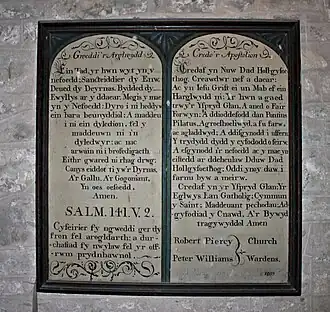 Gweddi'r Arglwydd
Ein Tad, yr hwn wyt yn y
nefoedd; Sancteiddier dy Enw.
Deued dy Deyrnas. Bydded dy
Ewyllys ar y ddaear, Megis y mae
yn y Nefoedd: Dyro i ni heddyw
ein bara beunyddiol: A maddeu
i ni ein dyledion, fel y
maddeuwn ni i'n
dyledwyr: ac nac
arwain ni i brofedigaeth
Eithr gwared ni rhag drwg:
Canys eiddot ti yw'r Dyrnas,
A'r Gallu, A'r Gogoniant,
Yn oes oesoedd.
Amen.
SALM. 141. V. 2.
Cyfeirier fy ngweddi ger dy
fron fel arogldarth: a dur-
chafiad fy nwylaw fel yr off-
rwm prydnhawnol.
Credo'r Apostolion
Credaf yn Nuw Dad Hollgyfoe-
thog, Creawdwr nef a daear:
Ac yn Iesu Grist ei un Mab ef ein
Harglwydd ni, A'r hwn a gaed
trwy'r Yspryd Glan, A aned o Fair
Forwyn; A ddioddefodd dan Pontius
Pilatus, A groeshoeliwyd, a fu farw,
ac a gladdwyd; A ddisgynodd i uffern;
Y trydydd dydd y cyfododd o feirw;
A esgynodd i'r nefoedd, ac y mae yn
eistedd ar ddeheulaw Dduw Dad
Hollgyfoethog; Oddi yno y daw i
farnu byw a meirw.
Credaf yn yr Yspryd Glan; Yr
Eglwys Lan Gatholig; Cymmun
y Saint; Maddeuant pechodau; Ad-
gyfodiad y Cnawd, A'r Bywyd
tragywyddol Amen
Robert Piercy } Church
Peter Williams } Wardens.